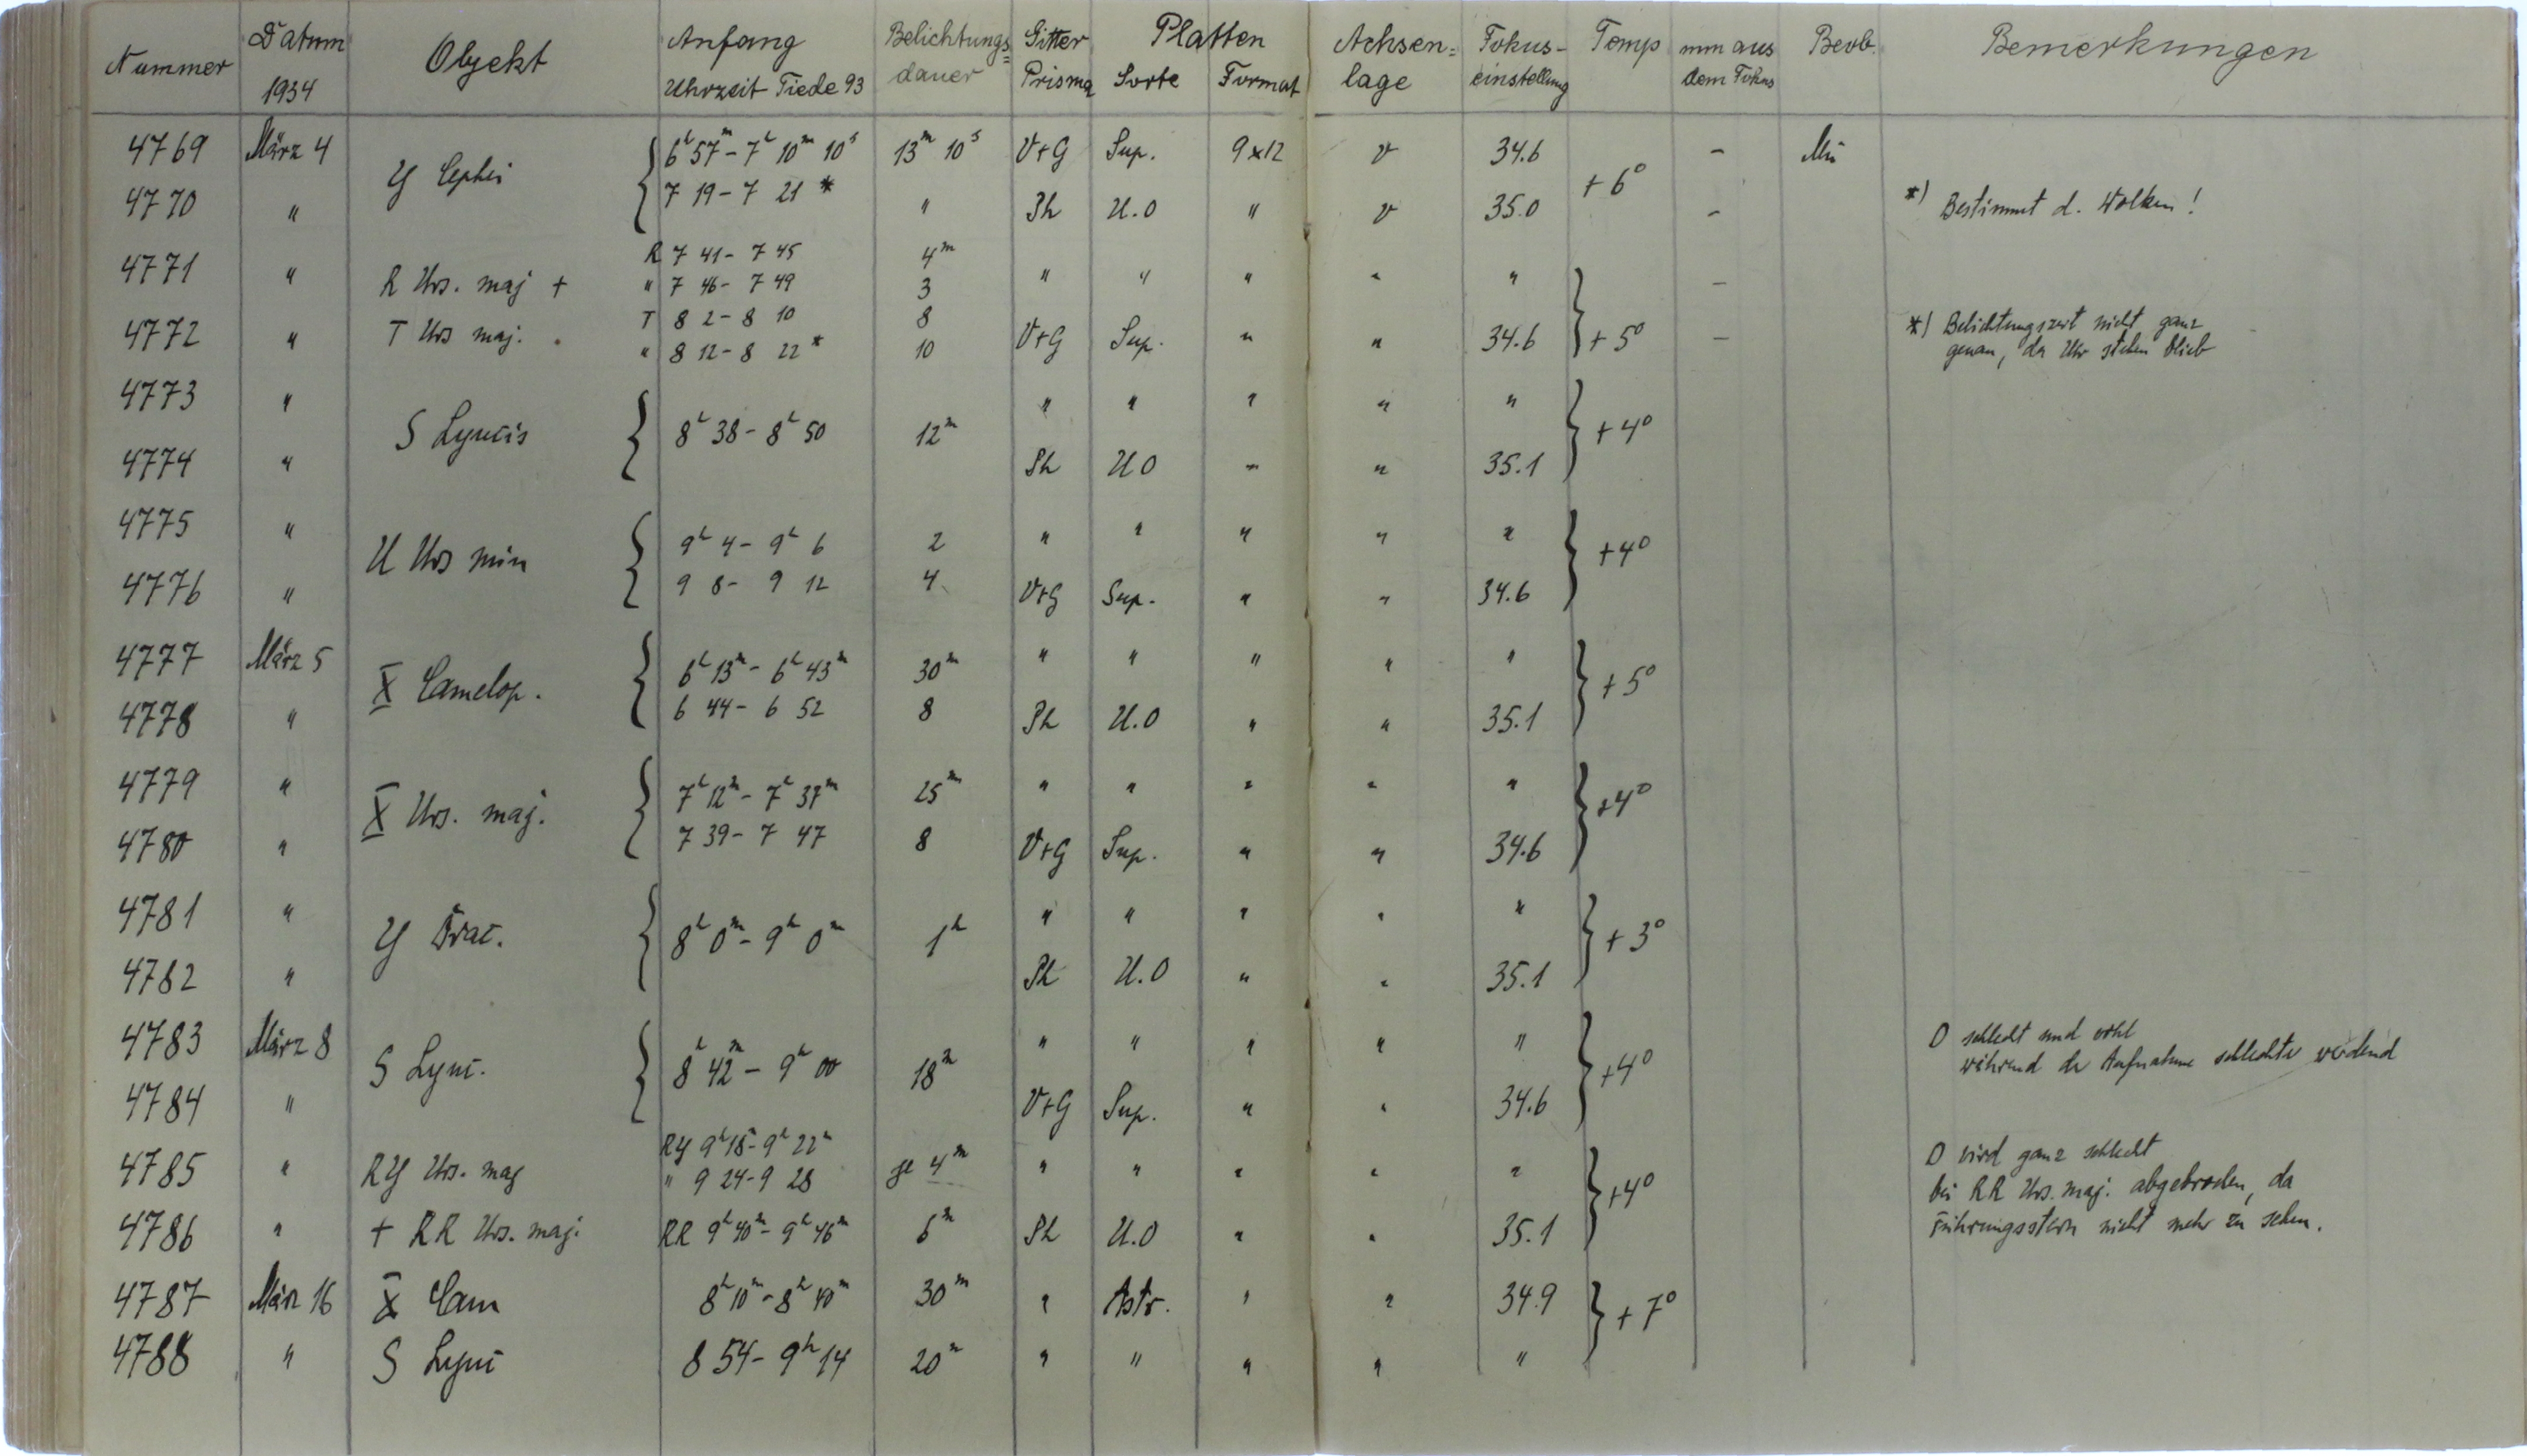 Nummer Datum 1934 Objekt Anfang Uhrzeit Tiede 93 Belichtungs= dauer Gitter Prisma Platten Sorte Format Achsen= lage Fokus- einstellung Temp mm aus dem Fokus Beob. Bemerkungen
4769 März 4 Y Cephei { 6h 57m - 7h 10m 10s 13m 10s V+G Sup. 9x12 v 34.6 +6° - Mü
4770 " 7 19 - 7 21 * " Ph U.O " v 35.0 - *) Bestimmt d. Wolken!
4771 " R Urs. maj + R 7 41 - 7 45 4m " " " " " -
" 7 46 - 7 49 3
4772 " T Urs maj. T 8 2 - 8 10 8 V+G Sup. " " 34.6 } +5° - *) Belichtungszeit nicht ganz
" 8 12 - 8 22 * 10 genau, da Uhr stehen blieb
4773 " S Lyncis { 8h 38 - 8h 50 12m " " " " " } +4°
4774 " Ph U O " " 35.1
4775 " U Urs min { 9h 4 - 9h 6 2 " " " " " } +4°
4776 " 9 8 - 9 12 4 V+G Sup. " " 34.6
4777 März 5 X Camelop. { 6h 13m - 6h 43m 30m " " " " " } +5°
4778 " 6 44 - 6 52 8 Ph U.O " " 35.1
4779 " X Urs. maj. { 7h 12m - 7h 37m 25m " " " " " } +4°
4780 " 7 39 - 7 47 8 V+G Sup. " " 34.6
4781 " Y Drac. { 8h 0m - 9h 0m 1h " " " " " } +3°
4782 " Ph U.O " " 35.1
4783 März 8 S Lync. { 8h 42m - 9h 00 18m " " " " " } +4° schlecht und
während der Aufnahme schlechter werdend
4784 " V+G Sup. " " 34.6
4785 " RY Urs. maj RY 9h 18 - 9h 22m je 4m " " " " " } +4° wird ganz schlecht
" 9 24 - 9 28 bei RR Urs. maj. abgebrochen, da
4786 " + RR Urs. maj. RR 9h 40m - 9h 46m 6m Ph U.O " " 35.1 Führungsstern nicht mehr zu sehen.
4787 März 16 X Cam 8h 10m - 8h 40m 30m " Astr. " " 34.9 } +7°
4788 " S Lync 8 54 - 9h 14 20m " " " " "